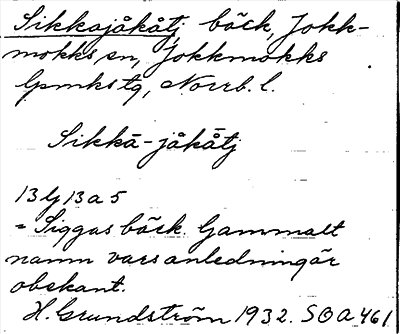 Sikkajåkåtj bäck, Jokk-
mokks sn, Jokkmokks
lpmkstg, Norrb. l.
Sikkā-jåkåtj
13 Ij 13 a 5
= Siggas bäck. Gammalt
namn vars anledning är
obskant.
H. Grundström 1932. SOA 461